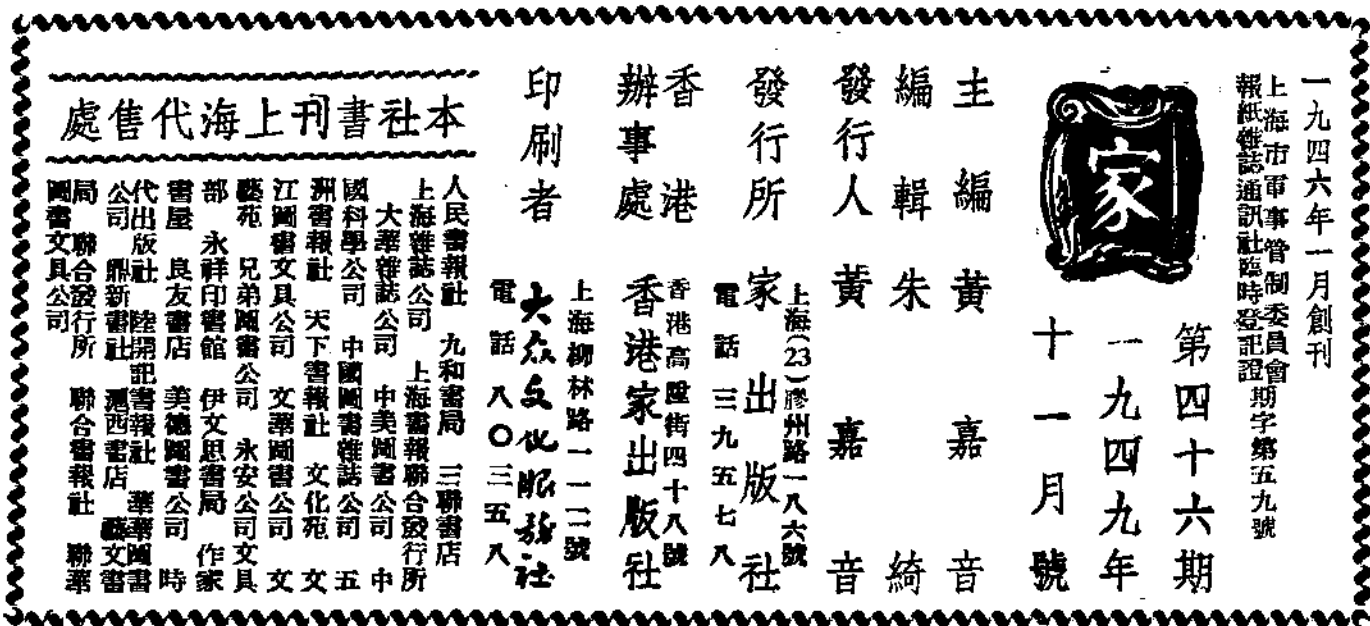 一九四六年一月創刊
上海市軍事管制委員會
報紙雜誌通訊社臨時登記證期字第五九號
家
第四十六期
一九四九年
十一月號
主編 黃嘉音
編輯 朱綺
發行人 黃嘉音
發行所 家出版社
上海(23)膠州路一八六號
電話 三九五七八
香港辦事處 香港家出版社
香港高陞街四十八號
印刷者 大众文化服務社
上海柳林路一一二號
電話 八〇三五八
本社書刊上海代售處
人民書報社 九和書局 三聯書店
上海雜誌公司 上海書報聯合發行所
大華雜誌公司 中美圖書公司 中
國科學公司 中國圖書雜誌公司 五
洲書報社 天下書報社 文化苑 文
江圖書文具公司 文華圖書公司 文
藝苑 兄弟圖書公司 永安公司文具
部 永祥印書館 伊文思書局 作家
書屋 良友書店 美德圖書公司 時
代出版社 陸開記書報社 華華圖書
公司 鼎新書社 滬西書店 藝文書
局 聯合發行所 聯合書報社 聯華
圖書文具公司